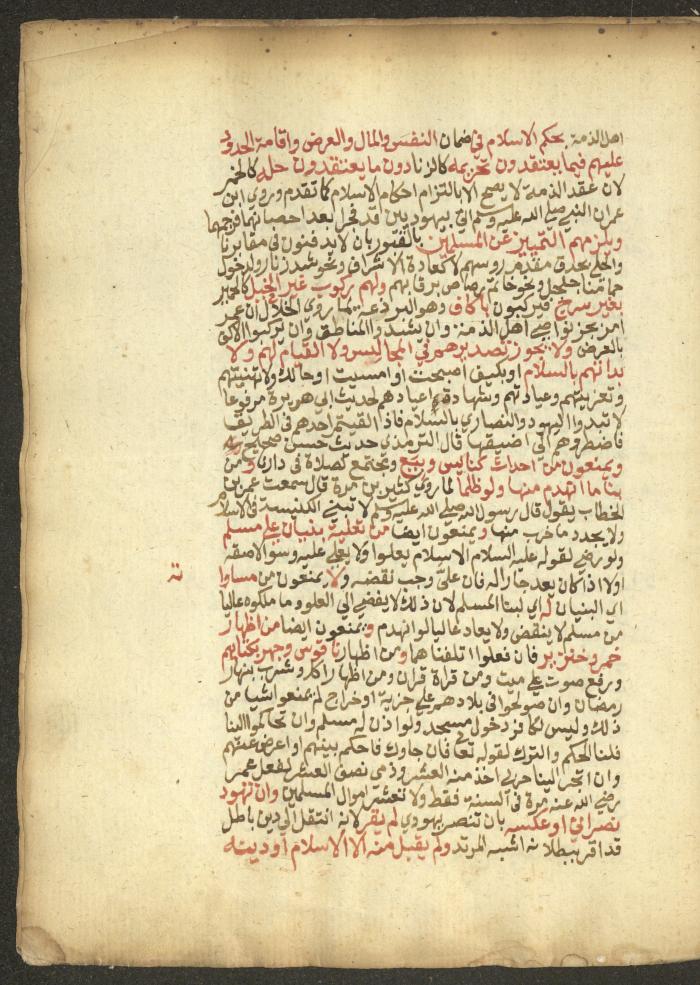 اهل الذمة بحكم الاسلام في ضمان النفس والمال والعرض واقامة الحدود
عليهم فيما يعتقدون تحريمه كالزنا دون ما يعتقدون حله كالخمر
لان عقد الذمة لا يصح الا بالتزام احكام الاسلام كما تقدم وروي ابن
عمران النبي صلى الله عليه وسلم اتي بيهوديين قد فجرا بعد احصانهما فرجمهما
ويلزمهم التمييز عن المسلمين بالقبور بان لا يدفنون في مقابرنا
والحلي بحذف مقدم روسهم لا كعادة الاشراف ونحو شد زنار ولدخول
حمامنا جلجل ونحو خاتم رصاص برقابهم ولهم ركوب غير الخيل كالحمير
بغير سرج فيركبون باكاف وهو البرذعة لما روي الخلال ان عمر
امر بجز نواصي اهل الذمة وان يشدوا المناطق وان يركبوا الاكف
بالعرض ولا يجوز تصديرهم في المجالس ولا القيام لهم ولا
بدائهم بالسلام او بكيف اصبحت او امسيت او حالك ولا تهنيتهم
وتعزيتهم وعيادتهم وشهادة اعيادهم لحديث ابي هريرة مرفوعا
لا تبدوا اليهود والنصاري بالسلام فاذا لقيتم احدهم في الطريق
فاضطروهم الي اضيقها قال الترمذي حديث حسن صحيح
ويمنعون من احداث كنايس وبيع ومجتمع لصلاة في دارنا ومن
بنا ما انهدم منها ولو ظلما لما روي كثير بن مرة قال سمعت عمر بن
الخطاب يقول قال رسول الله صلى الله عليه وسلم لا تبني الكنيسة في الاسلام
ولا يجدد ما خرب منها ويمنعون ايضا من تعلية بنيان علي مسلم
ولو رضي لقوله عليه السلام الاسلام يعلوا ولا يعلي عليه وسوا لاصقه
او لا اذا كان يعد جارا له فان علي وجب نقضه ولا يمنعون من مساوا
تة
اي البنيان له اي لبنا المسلم لان ذلك لا يفضي الي العلو وما ملكوه عاليا
من مسلم لا ينقض ولا يعاد عاليا لو انهدم ويمنعون ايضا من اظهار
خمر وخنزير فان فعلوا اتلفناهما ومن اظهار ناقوس وجهر بكتابهم
ورفع صوت علي ميت ومن قراة قران ومن اظهار اكل وشرب بنهار
رمضان وان صولحوا في بلادهم علي جزية او خراج لم يمنعوا شيا من
ذلك وليس لكافر دخول مسجد ولو اذن له مسلم وان تحاكموا الينا
فلنا الحكم والترك لقوله تعالى فان جاوك فاحكم بينهم او اعرض عنهم
وان اتجر الينا حربي اخذ منه العشر وذمي نصف العشر لفعل عمر
رضي الله عنه مرة في السنة فقط ولا تعشر اموال المسلمين وان تهود
نصراني او عكسه بان تنصر يهودي لم يقر لانه انتقل الي دين باطل
قد اقر ببطلانه اشبه المرتد ولم يقبل منه الا الاسلام او دينه